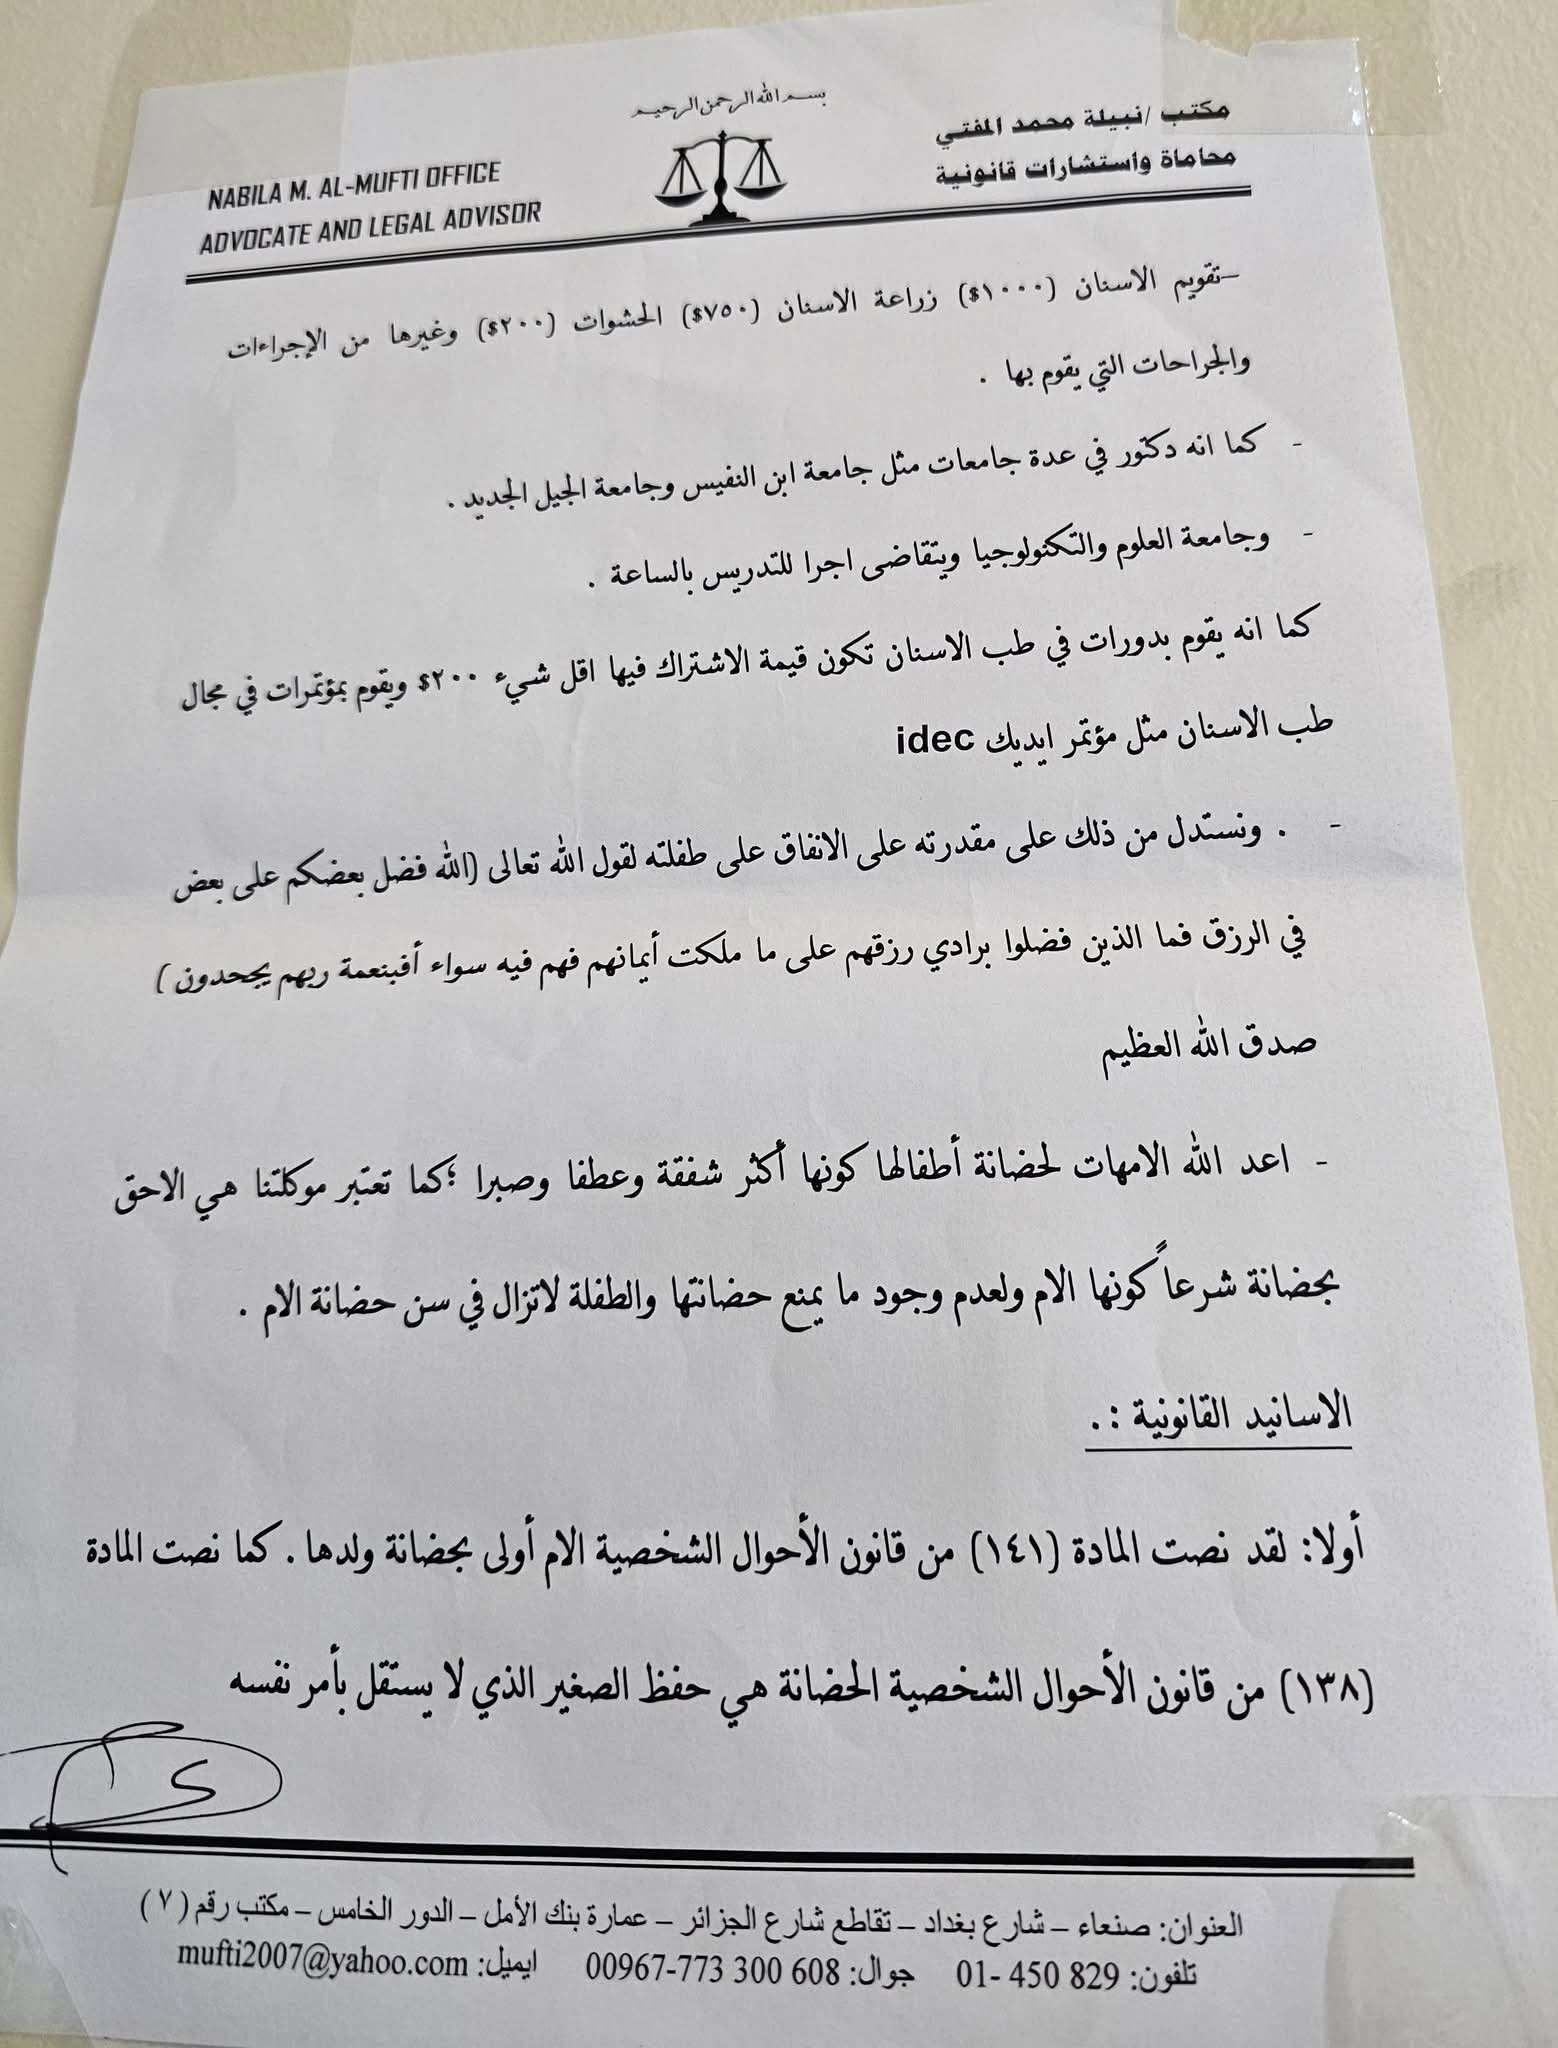 بسم الله الرحمن الرحيم
مكتب /نبيلة محمد المفتي
محاماة واستشارات قانونية
NABILA M. AL-MUFTI OFFICE
ADVOCATE AND LEGAL ADVISOR
-تقويم الاسنان (١٠٠٠$) زراعة الاسنان (٧٥٠$) الحشوات (٢٠٠$) وغيرها من الإجراءات
والجراحات التي يقوم بها .
- كما انه دكتور في عدة جامعات مثل جامعة ابن النفيس وجامعة الجيل الجديد .
- وجامعة العلوم والتكنولوجيا ويتقاضى اجرا للتدريس بالساعة .
كما انه يقوم بدورات في طب الاسنان تكون قيمة الاشتراك فيها اقل شيء ٢٠٠$ ويقوم بمؤتمرات في مجال
طب الاسنان مثل مؤتمر ايديك idec
- . ونستدل من ذلك على مقدرته على الانفاق على طفلته لقول الله تعالى (الله فضل بعضكم على بعض
في الرزق فما الذين فضلوا برادي رزقهم على ما ملكت أيمانهم فهم فيه سواء أفبنعمة ربهم يجحدون )
صدق الله العظيم
- اعد الله الامهات لحضانة أطفالها كونها أكثر شفقة وعطفا وصبرا ؛كما تعتبر موكلتنا هي الاحق
بحضانة شرعاً كونها الام ولعدم وجود ما يمنع حضانتها والطفلة لاتزال في سن حضانة الام .
الاسانيد القانونية :.
أولا: لقد نصت المادة (١٤١) من قانون الأحوال الشخصية الام أولى بحضانة ولدها . كما نصت المادة
(١٣٨) من قانون الأحوال الشخصية الحضانة هي حفظ الصغير الذي لا يستقل بأمر نفسه
العنوان: صنعاء – شارع بغداد – تقاطع شارع الجزائر – عمارة بنك الأمل – الدور الخامس – مكتب رقم (٧)
تلفون: 01- 450 829 جوال: 00967-773 300 608 ايميل: mufti2007@yahoo.com